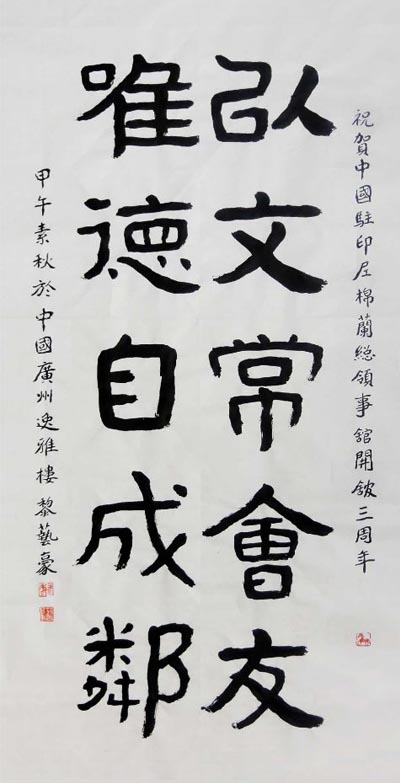 祝賀中國駐印尼棉蘭總領事舘開舘三周年
以文常會友
唯德自成鄰
甲午素秋於中國廣州逸雅樓黎藝豪